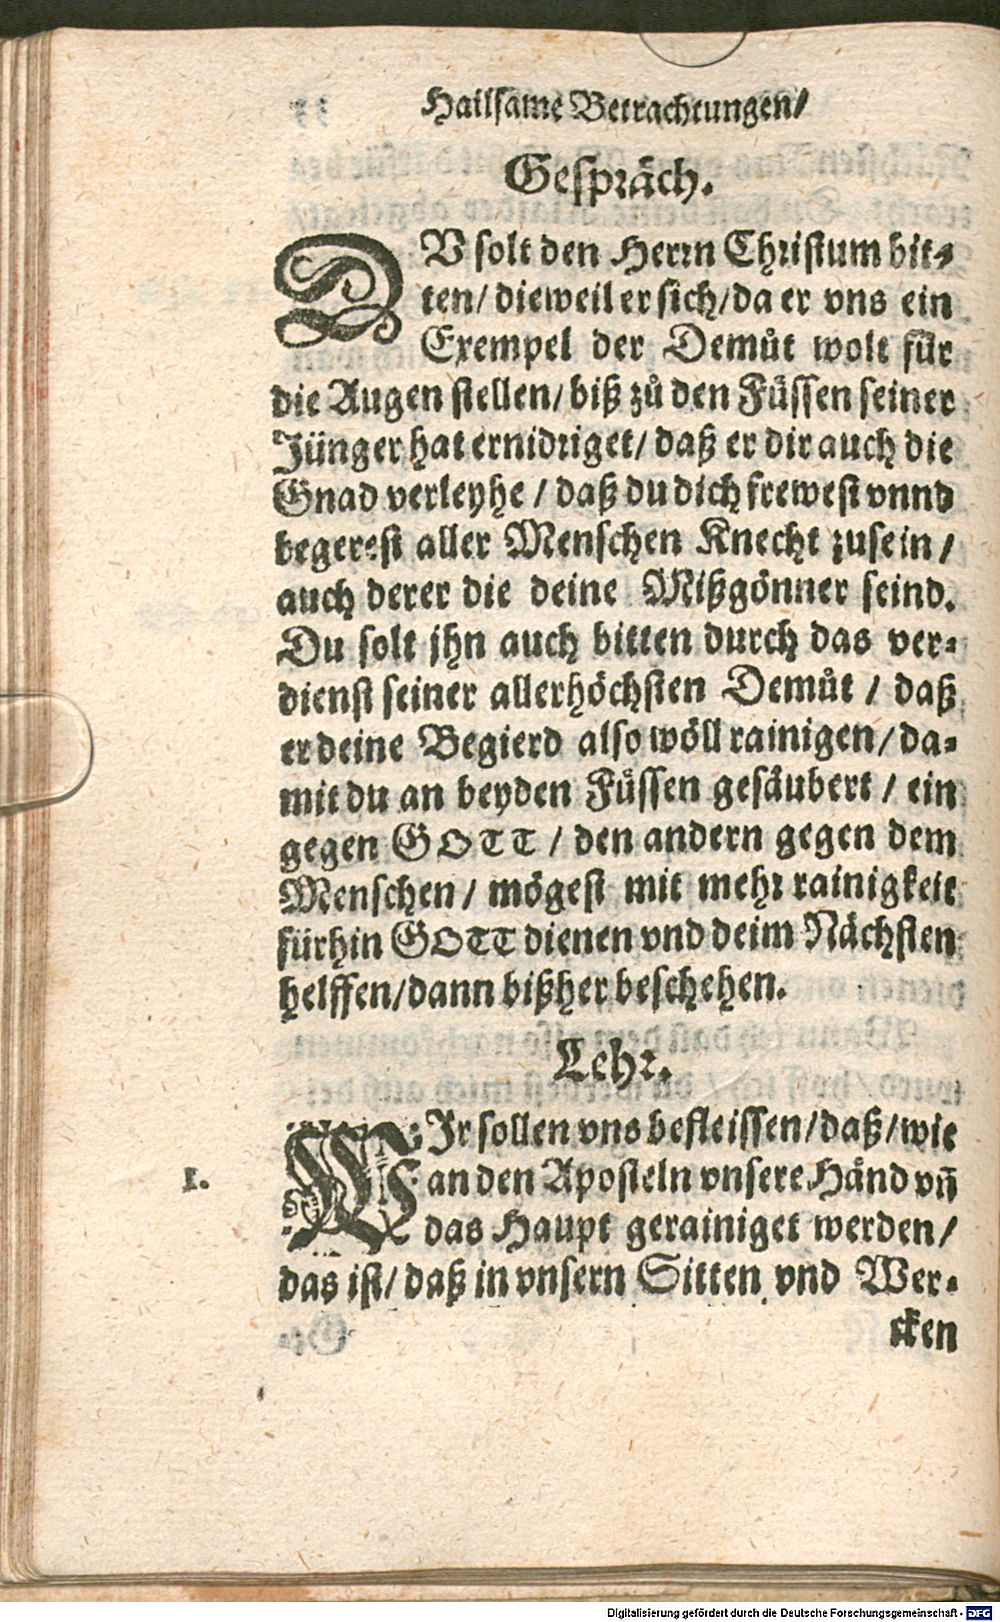 Hailsame Betrachtungen/
Gespräch.
DV solt den Herrn Christum bit-
ten/ dieweil er sich/ da er vns ein
Exempel der Demůt wolt für
die Augen stellen/ biß zů den Füssen seiner
Jünger hat ernidriget/ daß er dir auch die
Gnad verleyhe / daß du dich frewest vnnd
begerest aller Menschen Knecht zusein /
auch derer die deine Mißgönner seind.
Du solt jhn auch bitten durch das ver-
dienst seiner allerhöchsten Demůt / daß
er deine Begierd also wöll rainigen/ da-
mit du an beyden Füssen gesäubert / ein
gegen GOTT / den andern gegen dem
Menschen / mögest mit mehr rainigkeit
fürhin GOTT dienen vnd deim Nächsten
helffen/ dann bißher beschehen.
Lehr.
WJr sollen vns befleissen/ daß/ wie
1. an den Aposteln vnsere Händ vñ
das Haupt gerainiget werden/
das ist/ daß in vnsern Sitten vnd Wer-
cken
Digitalisierung gefördert durch die Deutsche Forschungsgemeinschaft - DFG